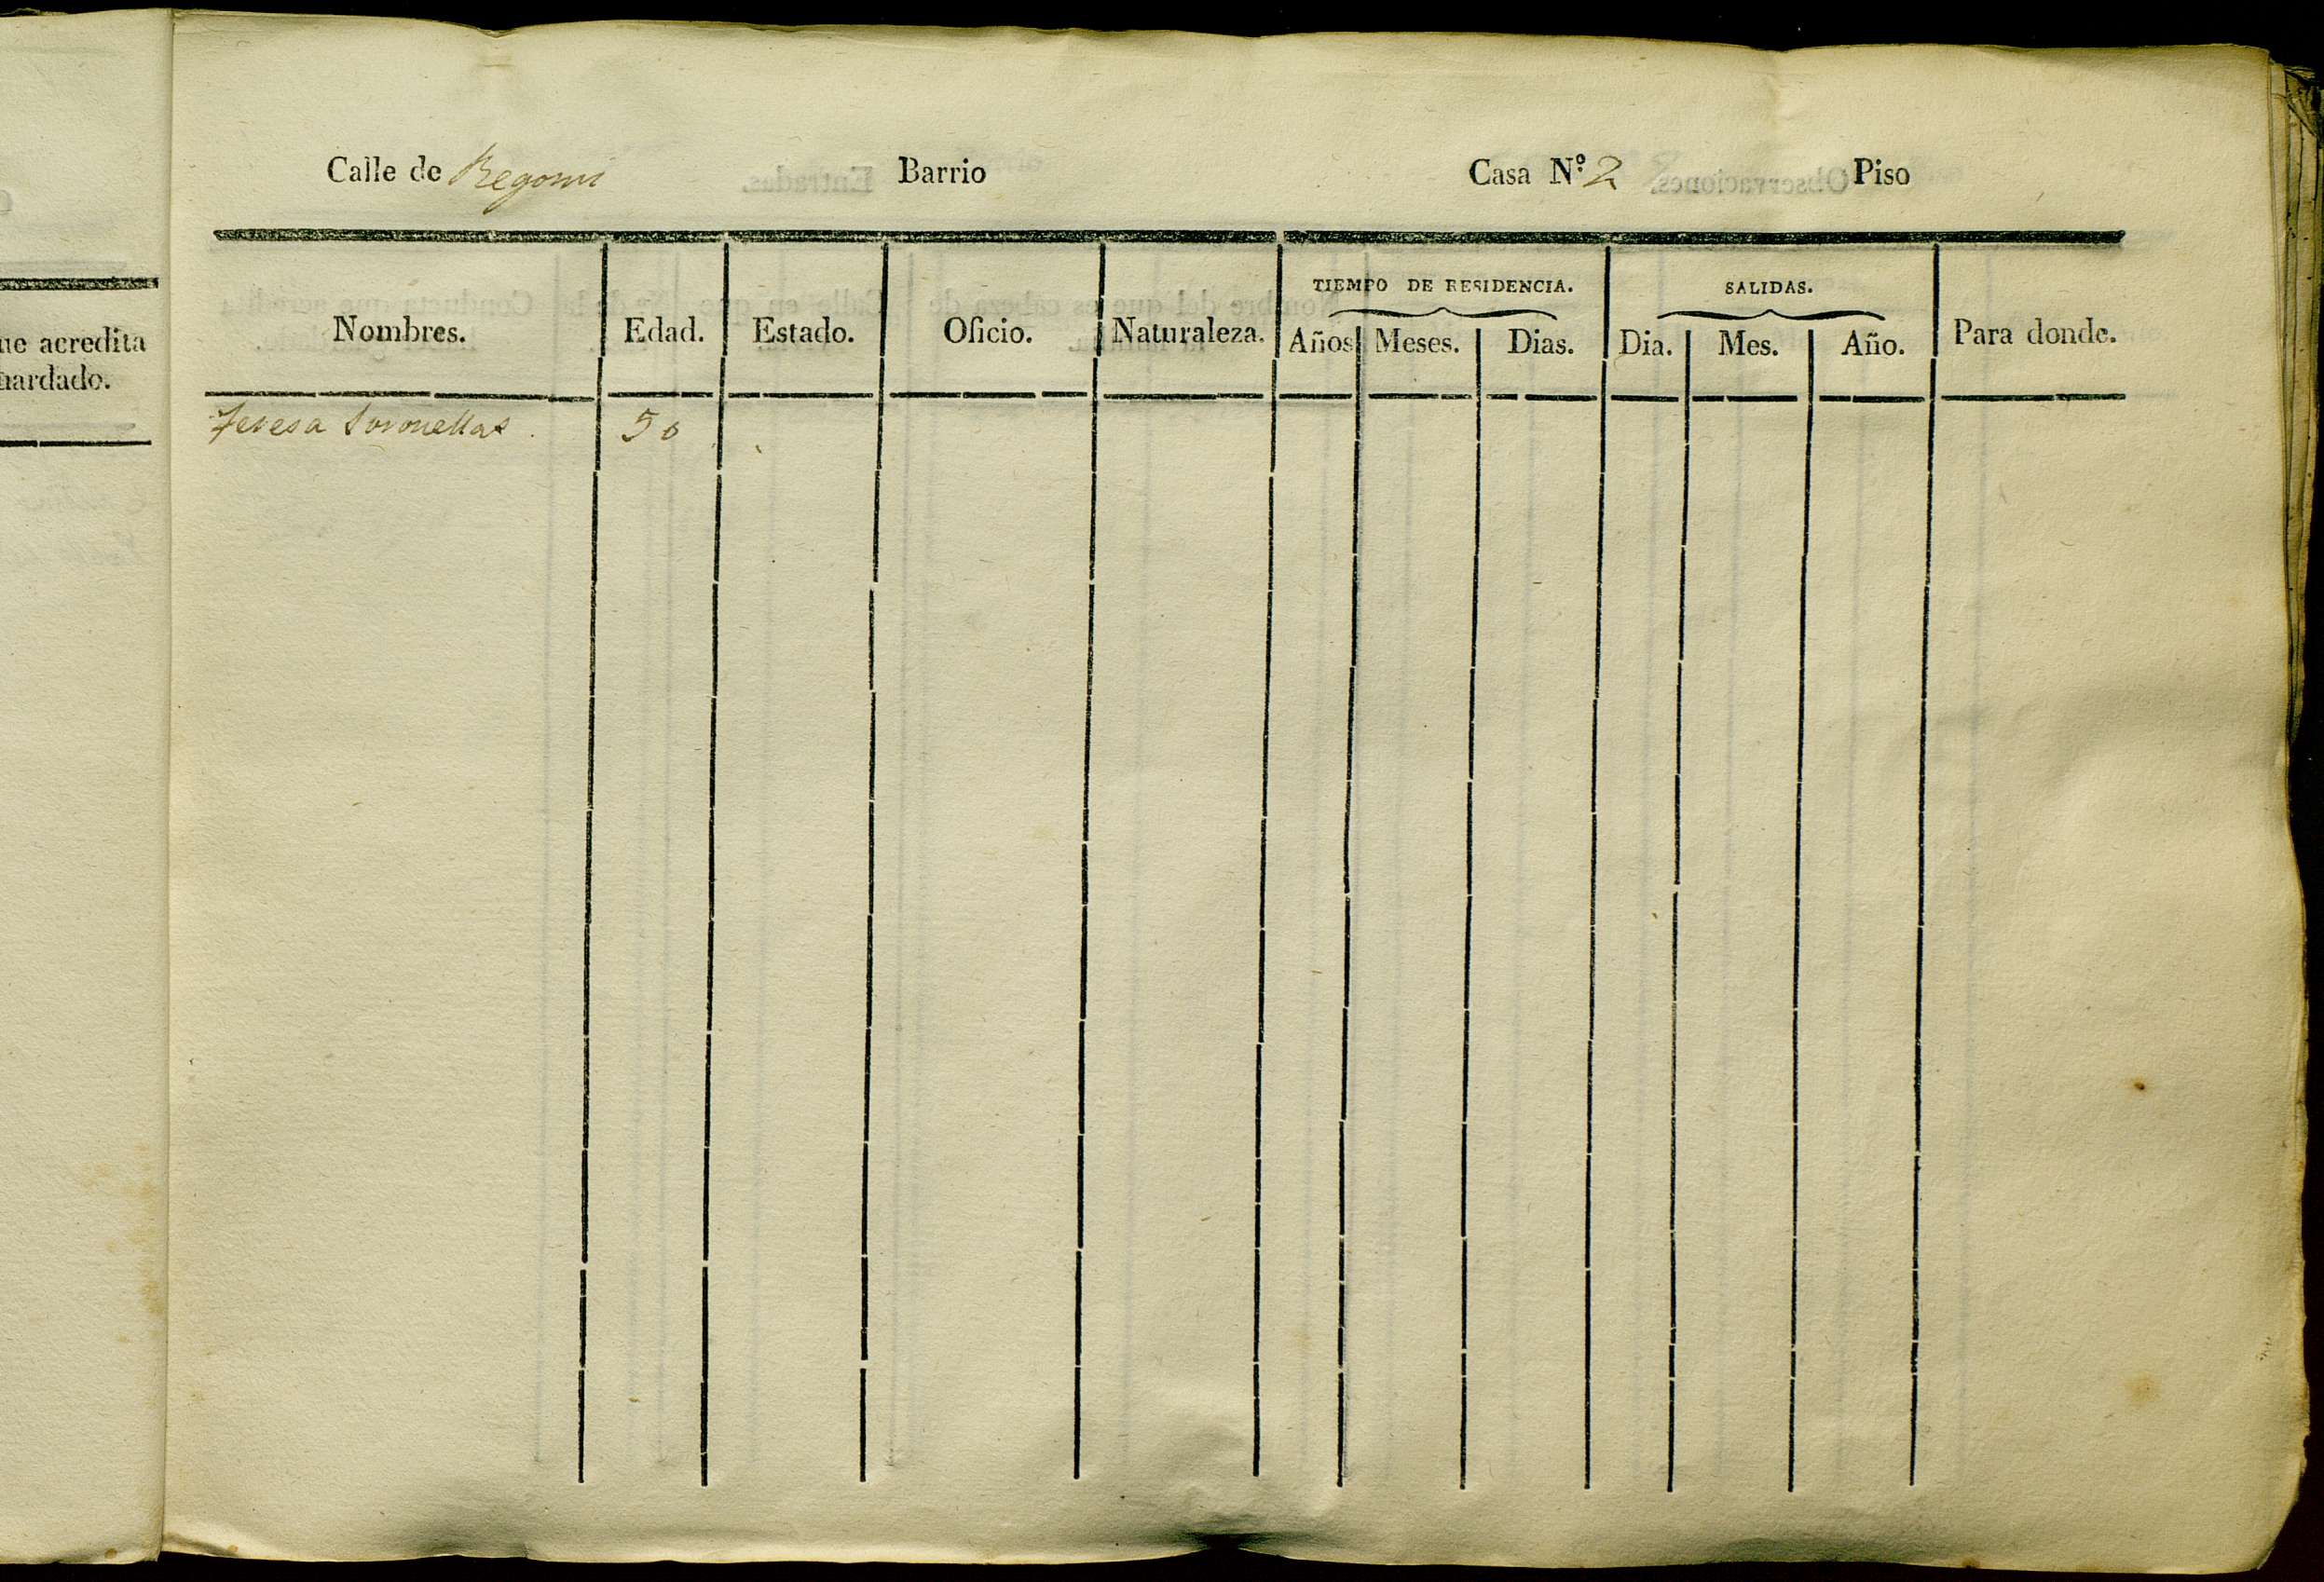 Calle de Regomi Barrio Casa N.º 2 Piso
TIEMPO DE RESIDENCIA. SALIDAS.
Nombres. Edad. Estado. Oficio. Naturaleza. Años Meses. Dias. Dia. Mes. Año. Para donde.
Teresa Soronellas. 50
ue acredita
uardado.